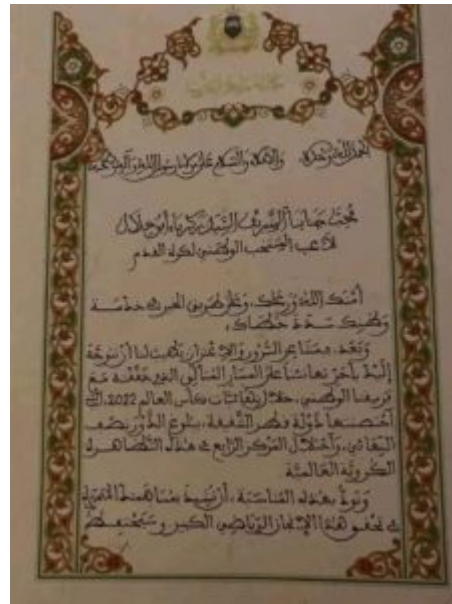 الحمد لله وحده، والصلاة والسلام على مولانا رسول الله وآله وصحبه
محب جنابنا الشريف السيد زكرياء أبو خلال
لاعب المنتخب الوطني لكرة القدم
أمنك الله ورعاك، وعلى طريق الخير في خدمة
وطنك سدد خطاك،
وبعد، فبمشاعر السرور والاعتزاز يطيب لنا أن نتوجه
إليك بأحر تهانئنا على المسار المثالي الذي حققته مع
فريقنا الوطني، خلال نهائيات كأس العالم 2022، التي
احتضنتها دولة قطر الشقيقة، ببلوغ الدور نصف
النهائي، واحتلال المركز الرابع في هذه التظاهرة
الكروية العالمية.
ونود بهذه المناسبة، أن نشيد بمساهمتك المتميزة
في تحقيق هذا الإنجاز الرياضي الكبير و